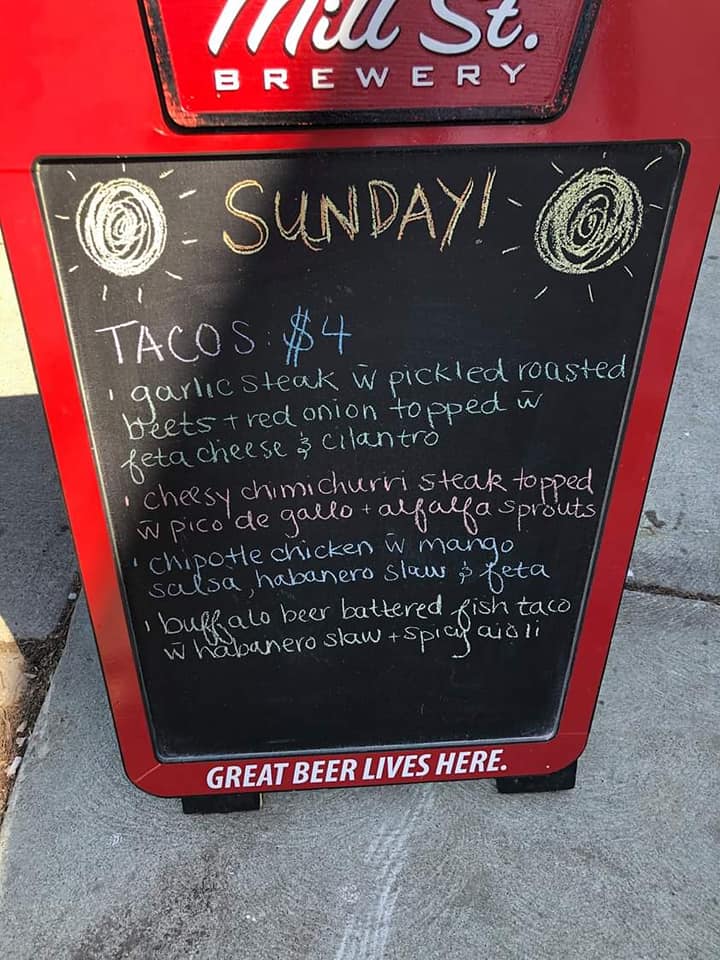 Mill St.
BREWERY
SUNDAY!
TACOS: $4
· garlic steak w̄ pickled roasted
beets + red onion topped w̄
feta cheese & cilantro
· cheesy chimichurri steak topped
w̄ pico de gallo + alfalfa sprouts
· chipotle chicken w̄ mango
salsa, habanero slaw & feta
· buffalo beer battered fish taco
w̄ habanero slaw + spicy aioli
GREAT BEER LIVES HERE.